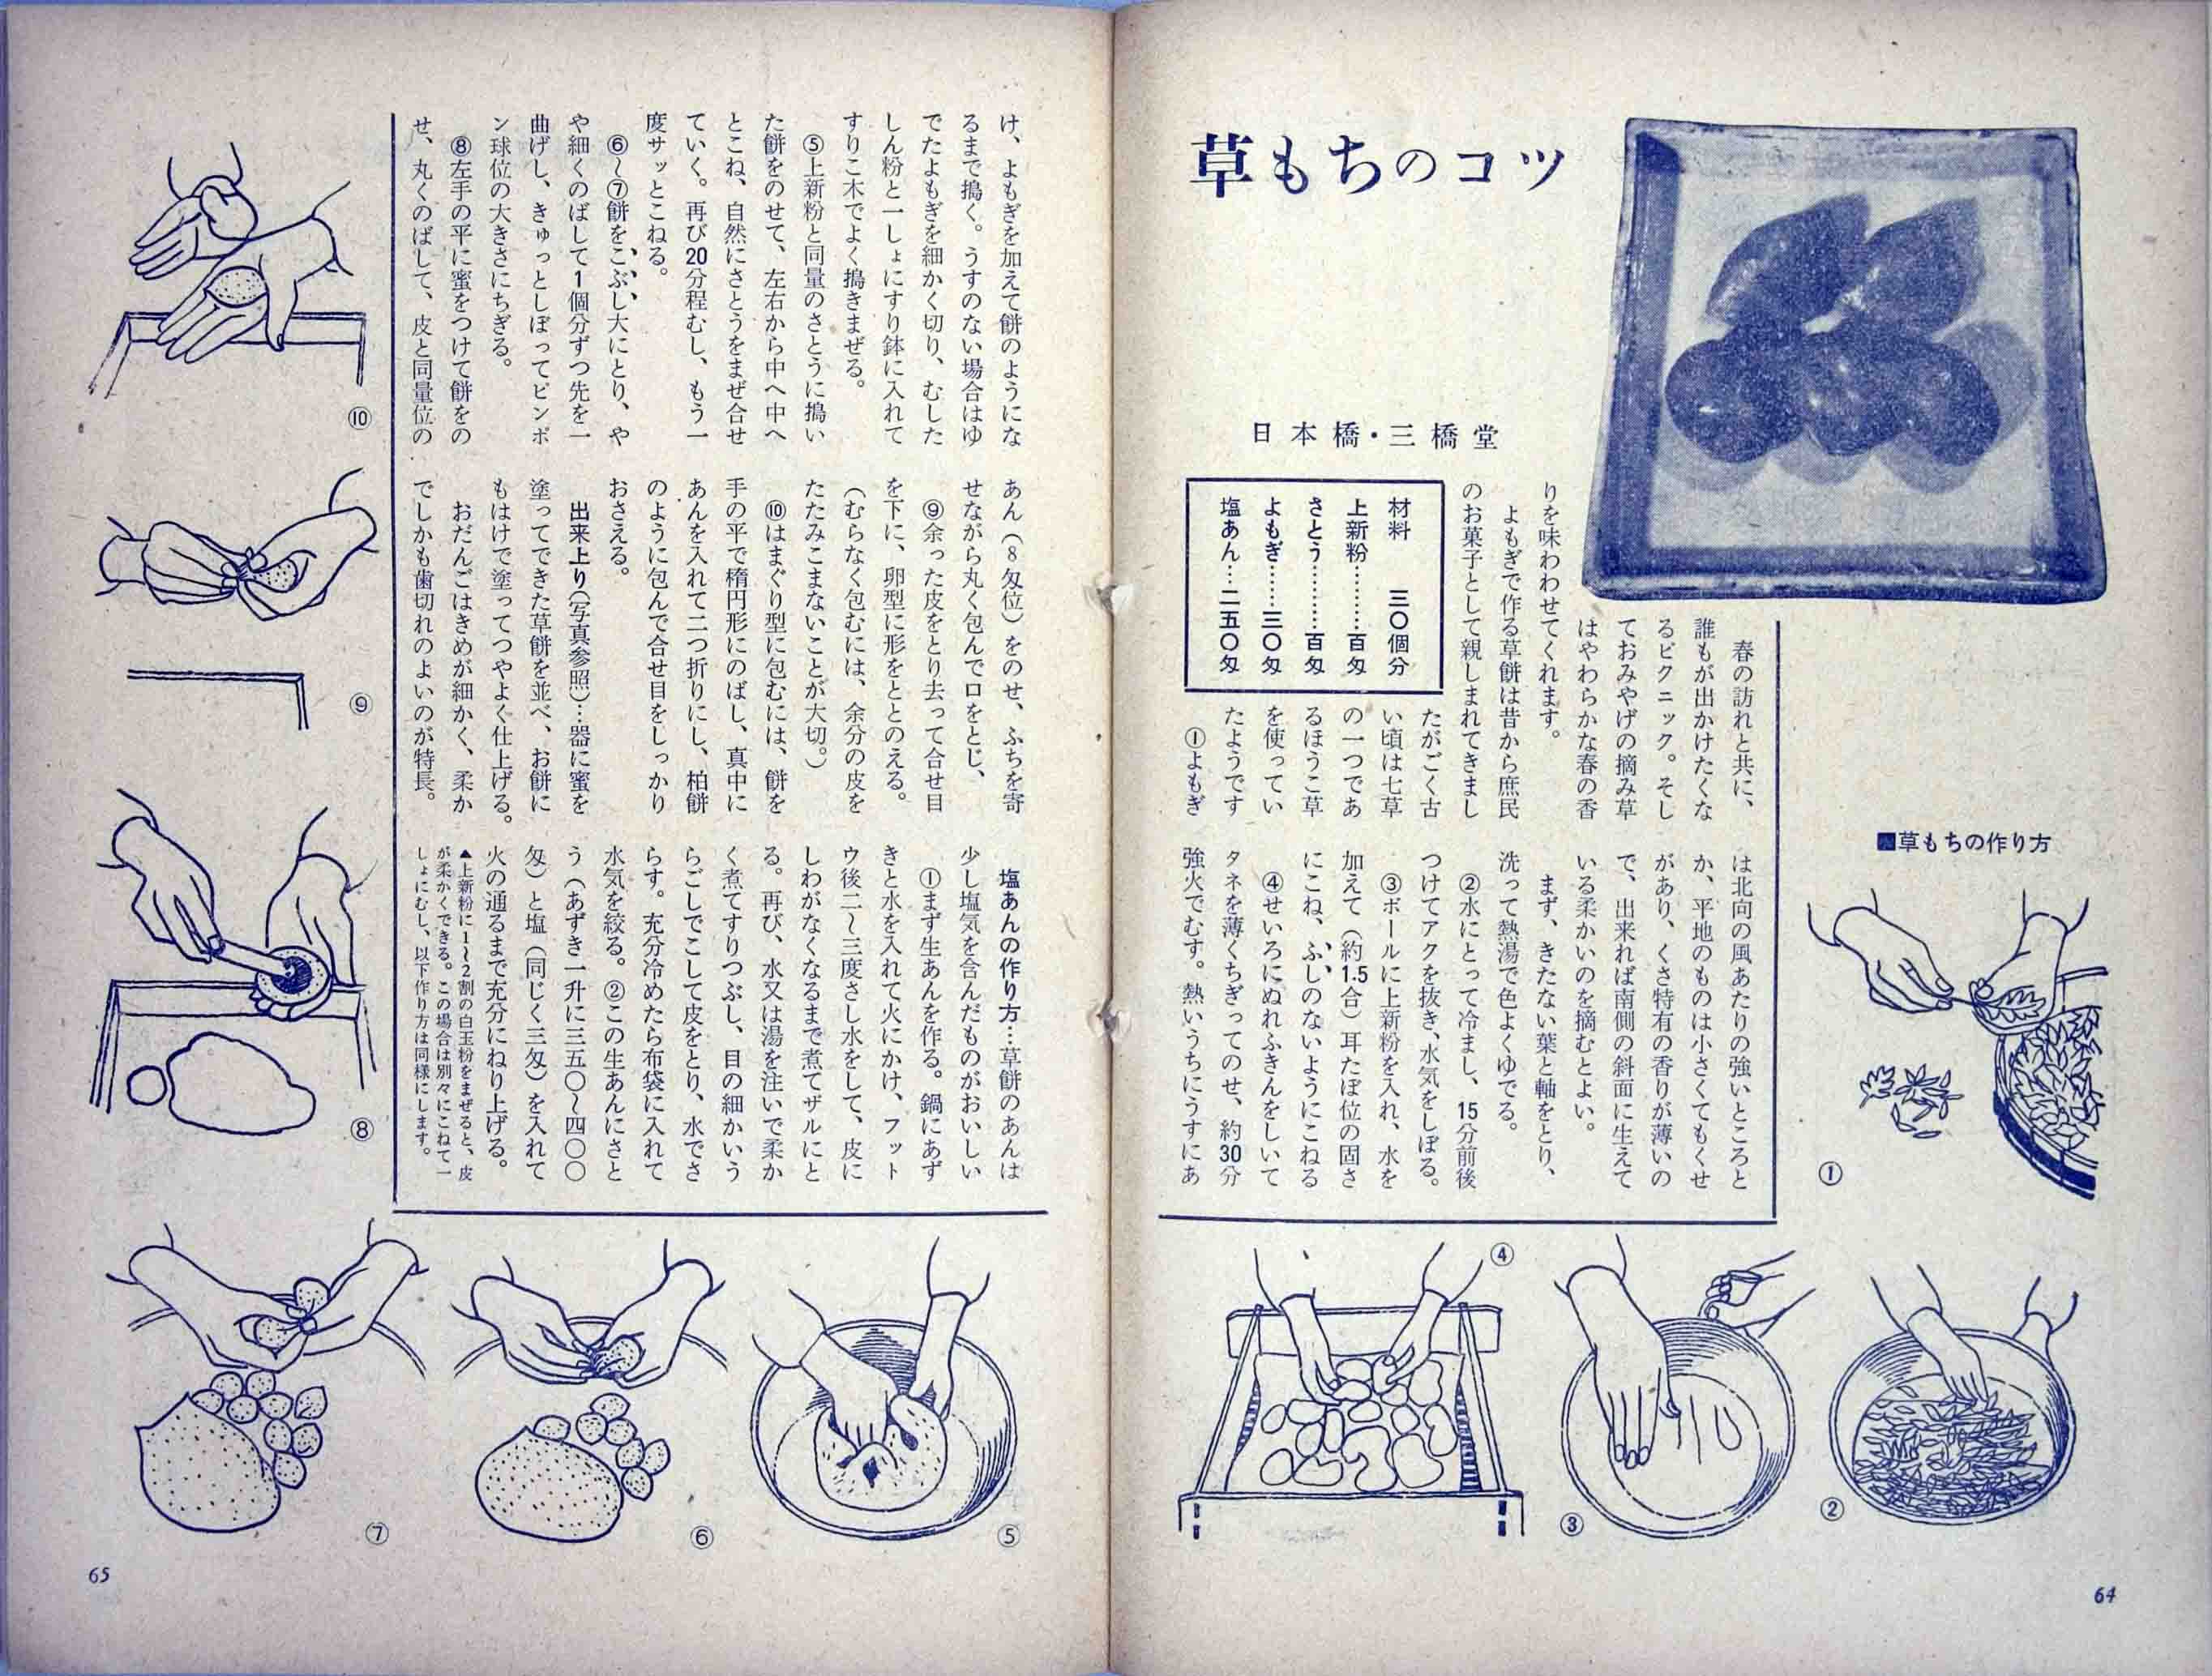 草もちのコツ
日本橋・三橋堂
春の訪れと共に、
誰もが出かけたくな
るピクニック。そし
ておみやげの摘み草
はやわらかな春の香
りを味わわせてくれます。
よもぎで作る草餅は昔から庶民
のお菓子として親しまれてきまし
たがごく古
い頃は七草
の一つであ
るほうこ草
を使ってい
たようです
材料 三〇個分
上新粉………百匁
さとう………百匁
よもぎ……三〇匁
塩あん…二五〇匁
①よもぎ
は北向の風あたりの強いところと
か、平地のものは小さくてもくせ
があり、くさ特有の香りが薄いの
で、出来れば南側の斜面に生えて
いる柔かいのを摘むとよい。
まず、きたない葉と軸をとり、
洗って熱湯で色よくゆでる。
②水にとって冷まし、15分前後
つけてアクを抜き、水気をしぼる。
③ボールに上新粉を入れ、水を
加えて（約1.5合）耳たぼ位の固さ
にこね、ふしのないようにこねる
④せいろにぬれふきんをしいて
タネを薄くちぎってのせ、約30分
強火でむす。熱いうちにうすにあ
■草もちの作り方
①
②
③
④
64
け、よもぎを加えて餅のようにな
るまで搗く。うすのない場合はゆ
でたよもぎを細かく切り、むした
しん粉と一しょにすり鉢に入れて
すりこ木でよく搗きまぜる。
⑤上新粉と同量のさとうに搗い
た餅をのせて、左右から中へ中へ
とこね、自然にさとうをまぜ合せ
ていく。再び20分程むし、もう一
度サッとこねる。
⑥〜⑦餅をこぶし大にとり、や
や細くのばして1個分ずつ先を一
曲げし、きゅっとしぼってピンポ
ン球位の大きさにちぎる。
⑧左手の平に蜜をつけて餅をの
せ、丸くのばして、皮と同量位の
あん（8匁位）をのせ、ふちを寄
せながら丸く包んで口をとじ、
⑨余った皮をとり去って合せ目
を下に、卵型に形をととのえる。
（むらなく包むには、余分の皮を
たたみこまないことが大切。）
⑩はまぐり型に包むには、餅を
手の平で楕円形にのばし、真中に
あんを入れて二つ折りにし、柏餅
のように包んで合せ目をしっかり
おさえる。
出来上り（写真参照）…器に蜜を
塗ってできた草餅を並べ、お餅に
もはけで塗ってつやよく仕上げる。
おだんごはきめが細かく、柔か
でしかも歯切れのよいのが特長。
塩あんの作り方…草餅のあんは
少し塩気を含んだものがおいしい
①まず生あんを作る。鍋にあず
きと水を入れて火にかけ、フット
ウ後二〜三度さし水をして、皮に
しわがなくなるまで煮てザルにと
る。再び、水又は湯を注いで柔か
く煮てすりつぶし、目の細かいう
らごしでこして皮をとり、水でさ
らす。充分冷めたら布袋に入れて
水気を絞る。②この生あんにさと
う（あずき一升に三五〇〜四〇〇
匁）と塩（同じく三匁）を入れて
火の通るまで充分にねり上げる。
▲上新粉に1〜2割の白玉粉をまぜると、皮
が柔かくできる。この場合は別々にこねて一
しょにむし、以下作り方は同様にします。
⑤
⑥
⑦
⑧
⑨
⑩
65